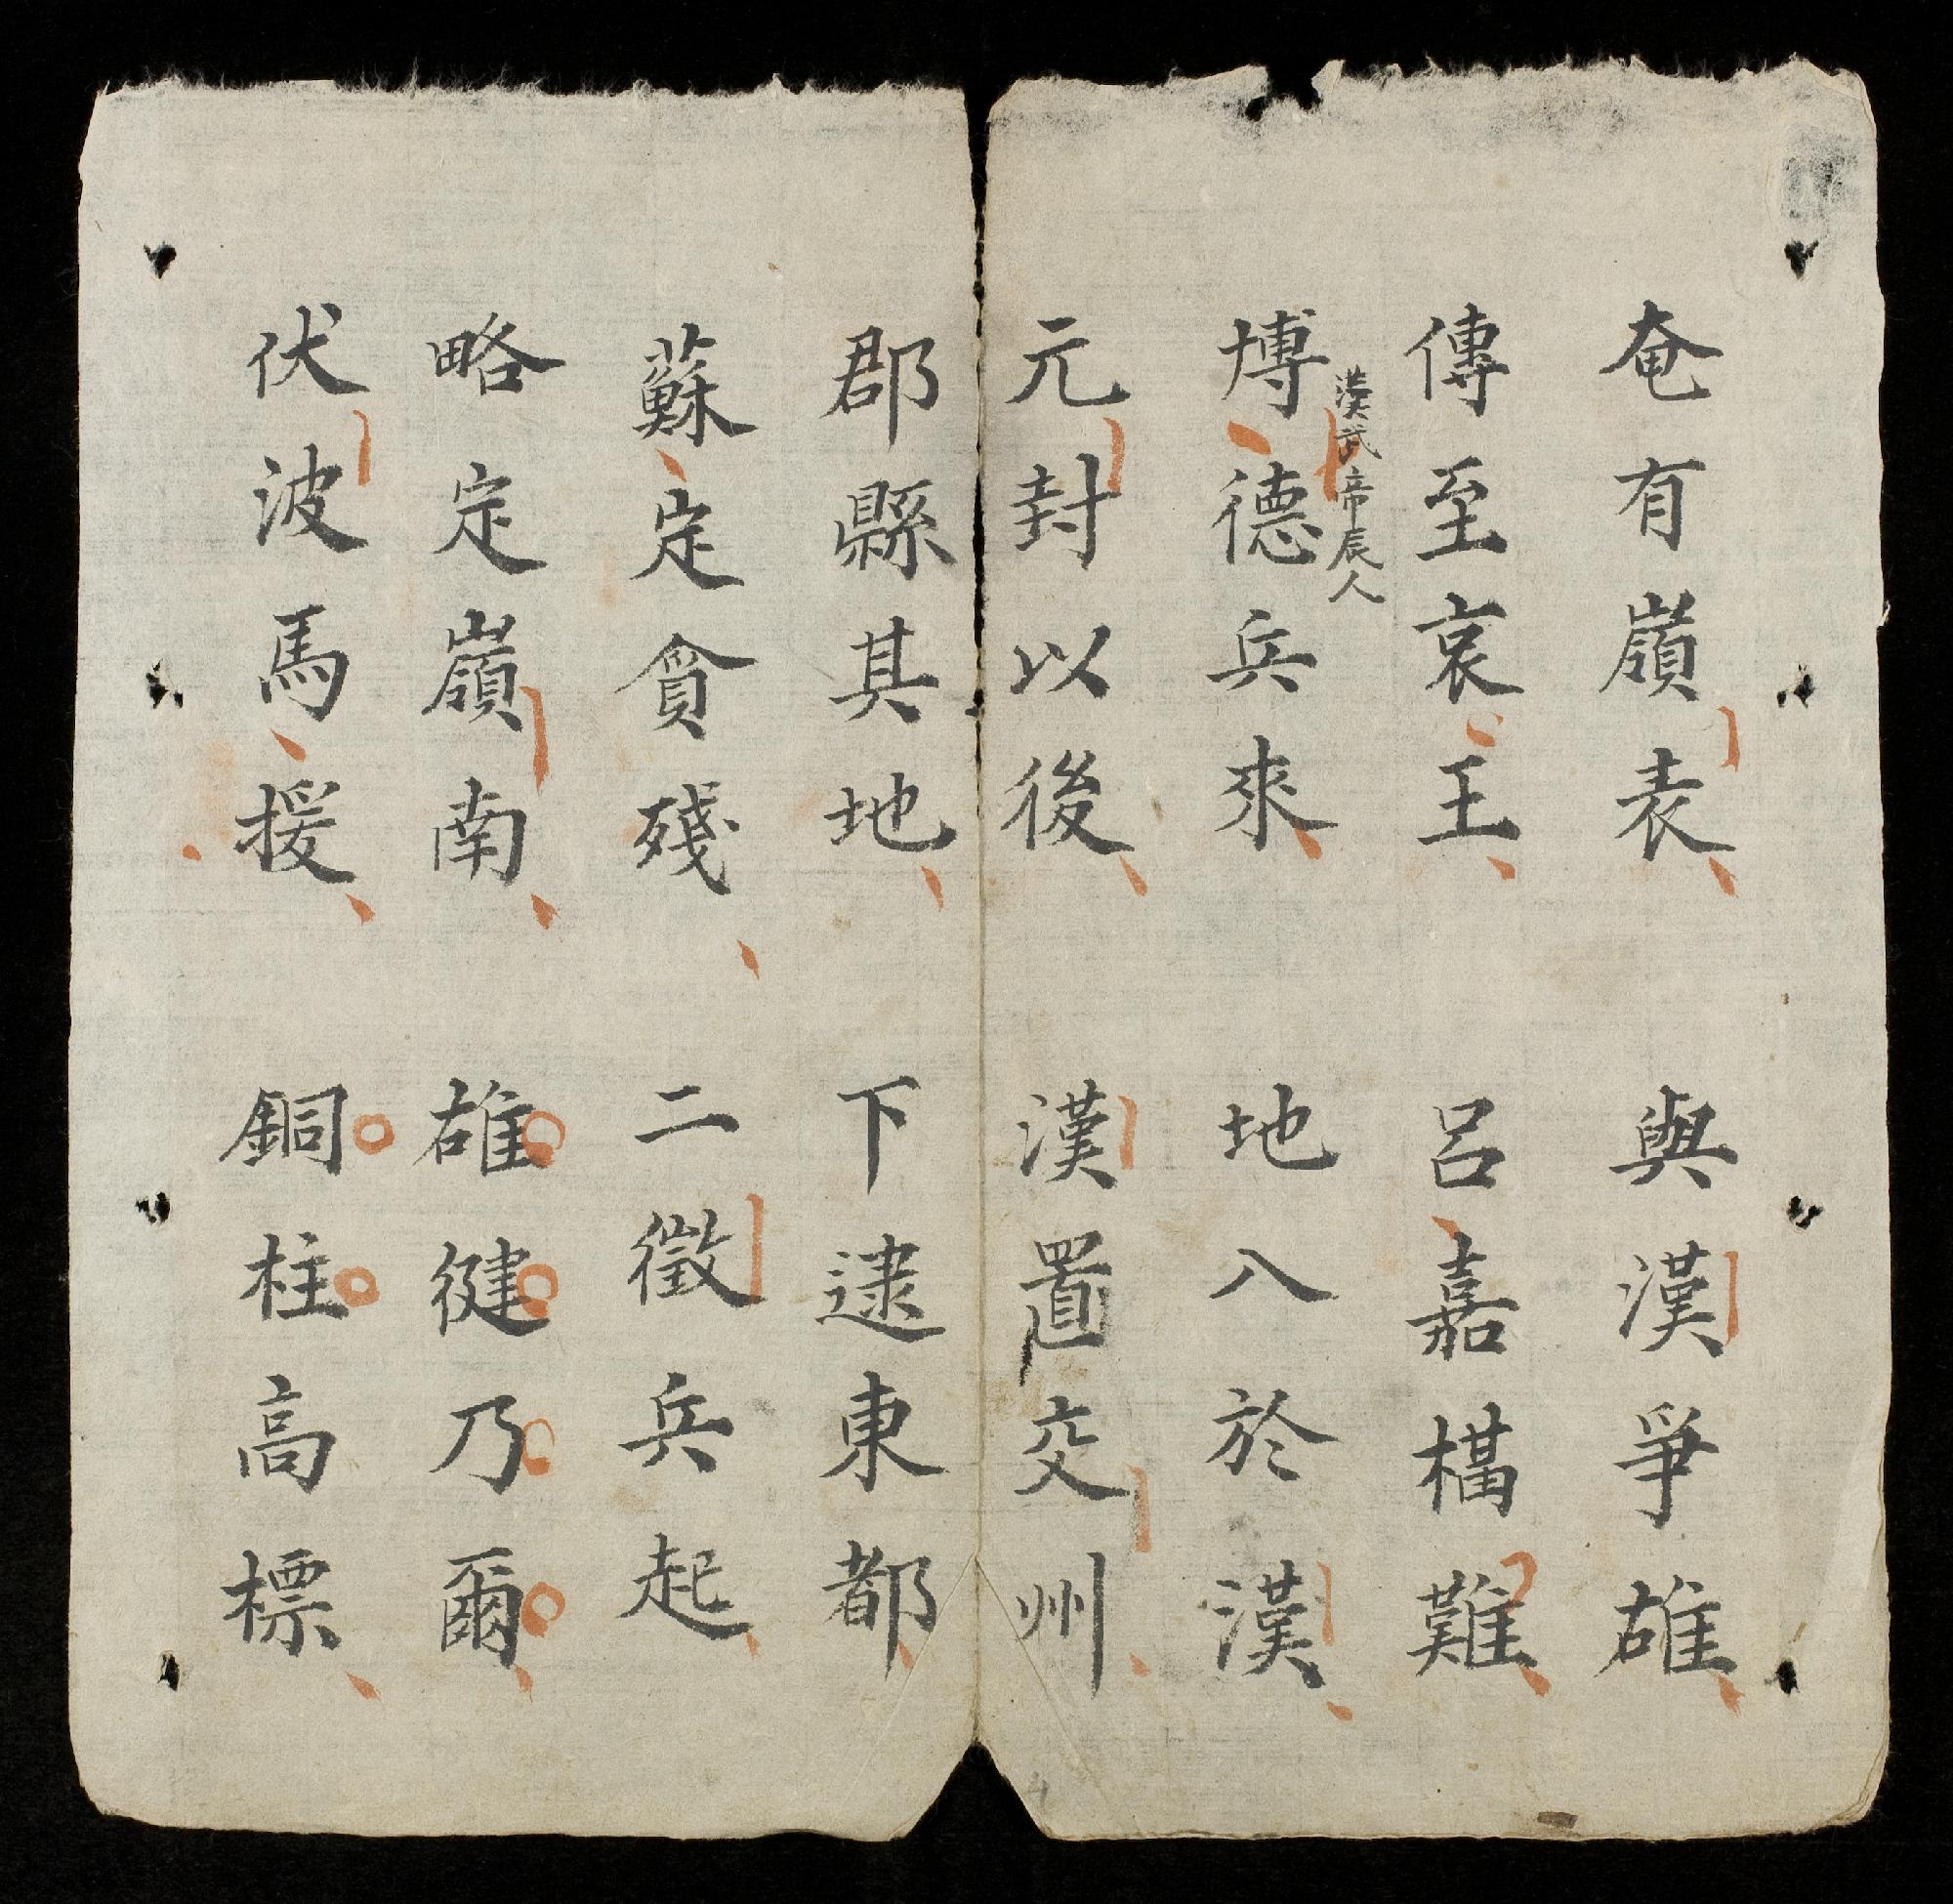 奄有嶺表 與漢爭雄
傳至哀王 呂嘉檔難
漢武帝辰人
博德兵來 地入於漢
元封以後 漢置交州
郡縣其地 下逮東都
蘇定貪殘 二徵兵起
略定嶺南 雄健乃爾
伏波馬援 銅柱高標